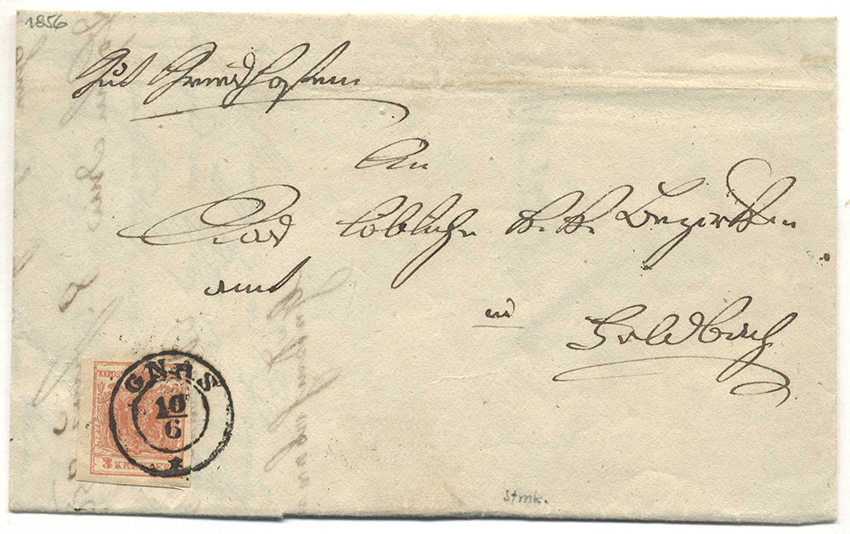 1856
Gut
An
Das löbliche k. k. Bezirks
amt
in
Feldbach
GNAS
10
6
3 KREUZER
Stmk.